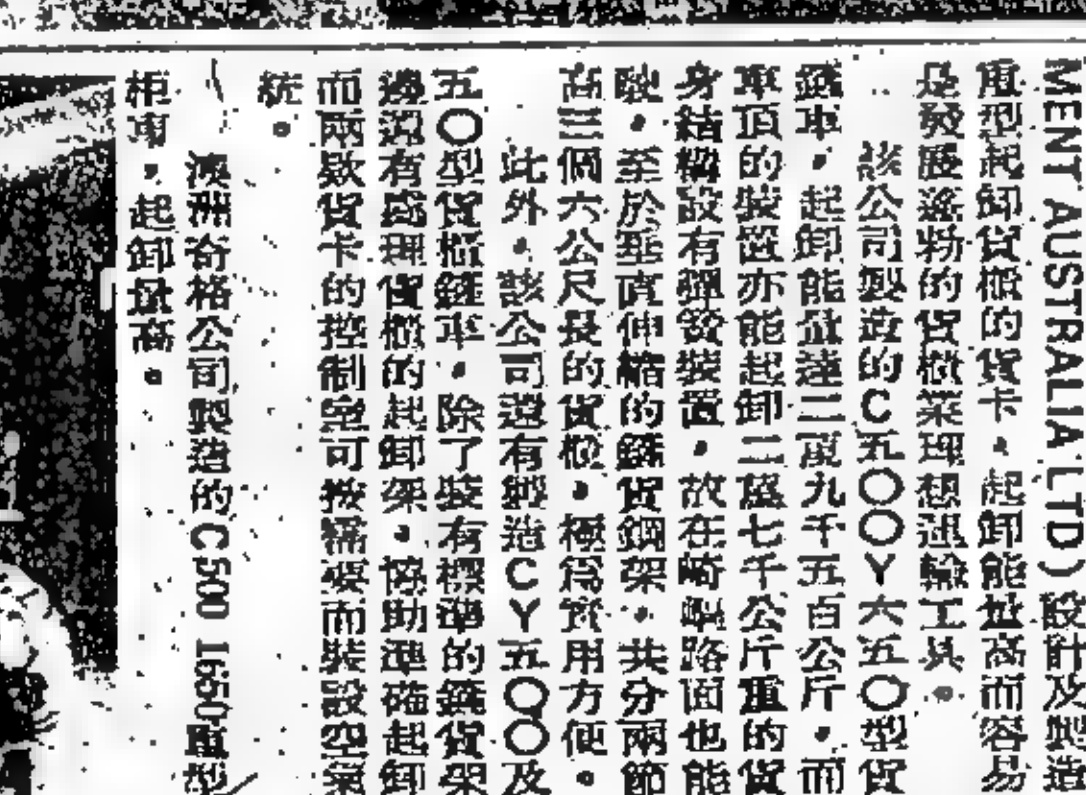 MENT AUSTRALIA LTD) 設計及製造
重型起卸貨櫃的貨卡，起卸能量高而容易
是發展蓬勃的貨櫃業理想运輸工具。
該公司製造的C五〇〇Y六五〇型貨
櫃車，起卸能量達二萬九千五百公斤，而
車頂的裝置亦能起卸二萬七千公斤重的貨
身結構設有彈簧裝置，故在崎嶇路面也能
駛，至於垂直伸縮的鏈貨鋼架，共分兩節
高三個六公尺長的貨櫃，極爲實用方便。
此外，該公司還有製造CY五〇〇及
五〇型貨櫃鏈車，除了裝有標準的鏈貨架
邊還有處理貨櫃的起卸架，協助準確起卸
而兩款貨卡的控制室可按需要而裝設空氣
統。
澳洲奇格公司製造的C500 1650重型
柜車，起卸量高。